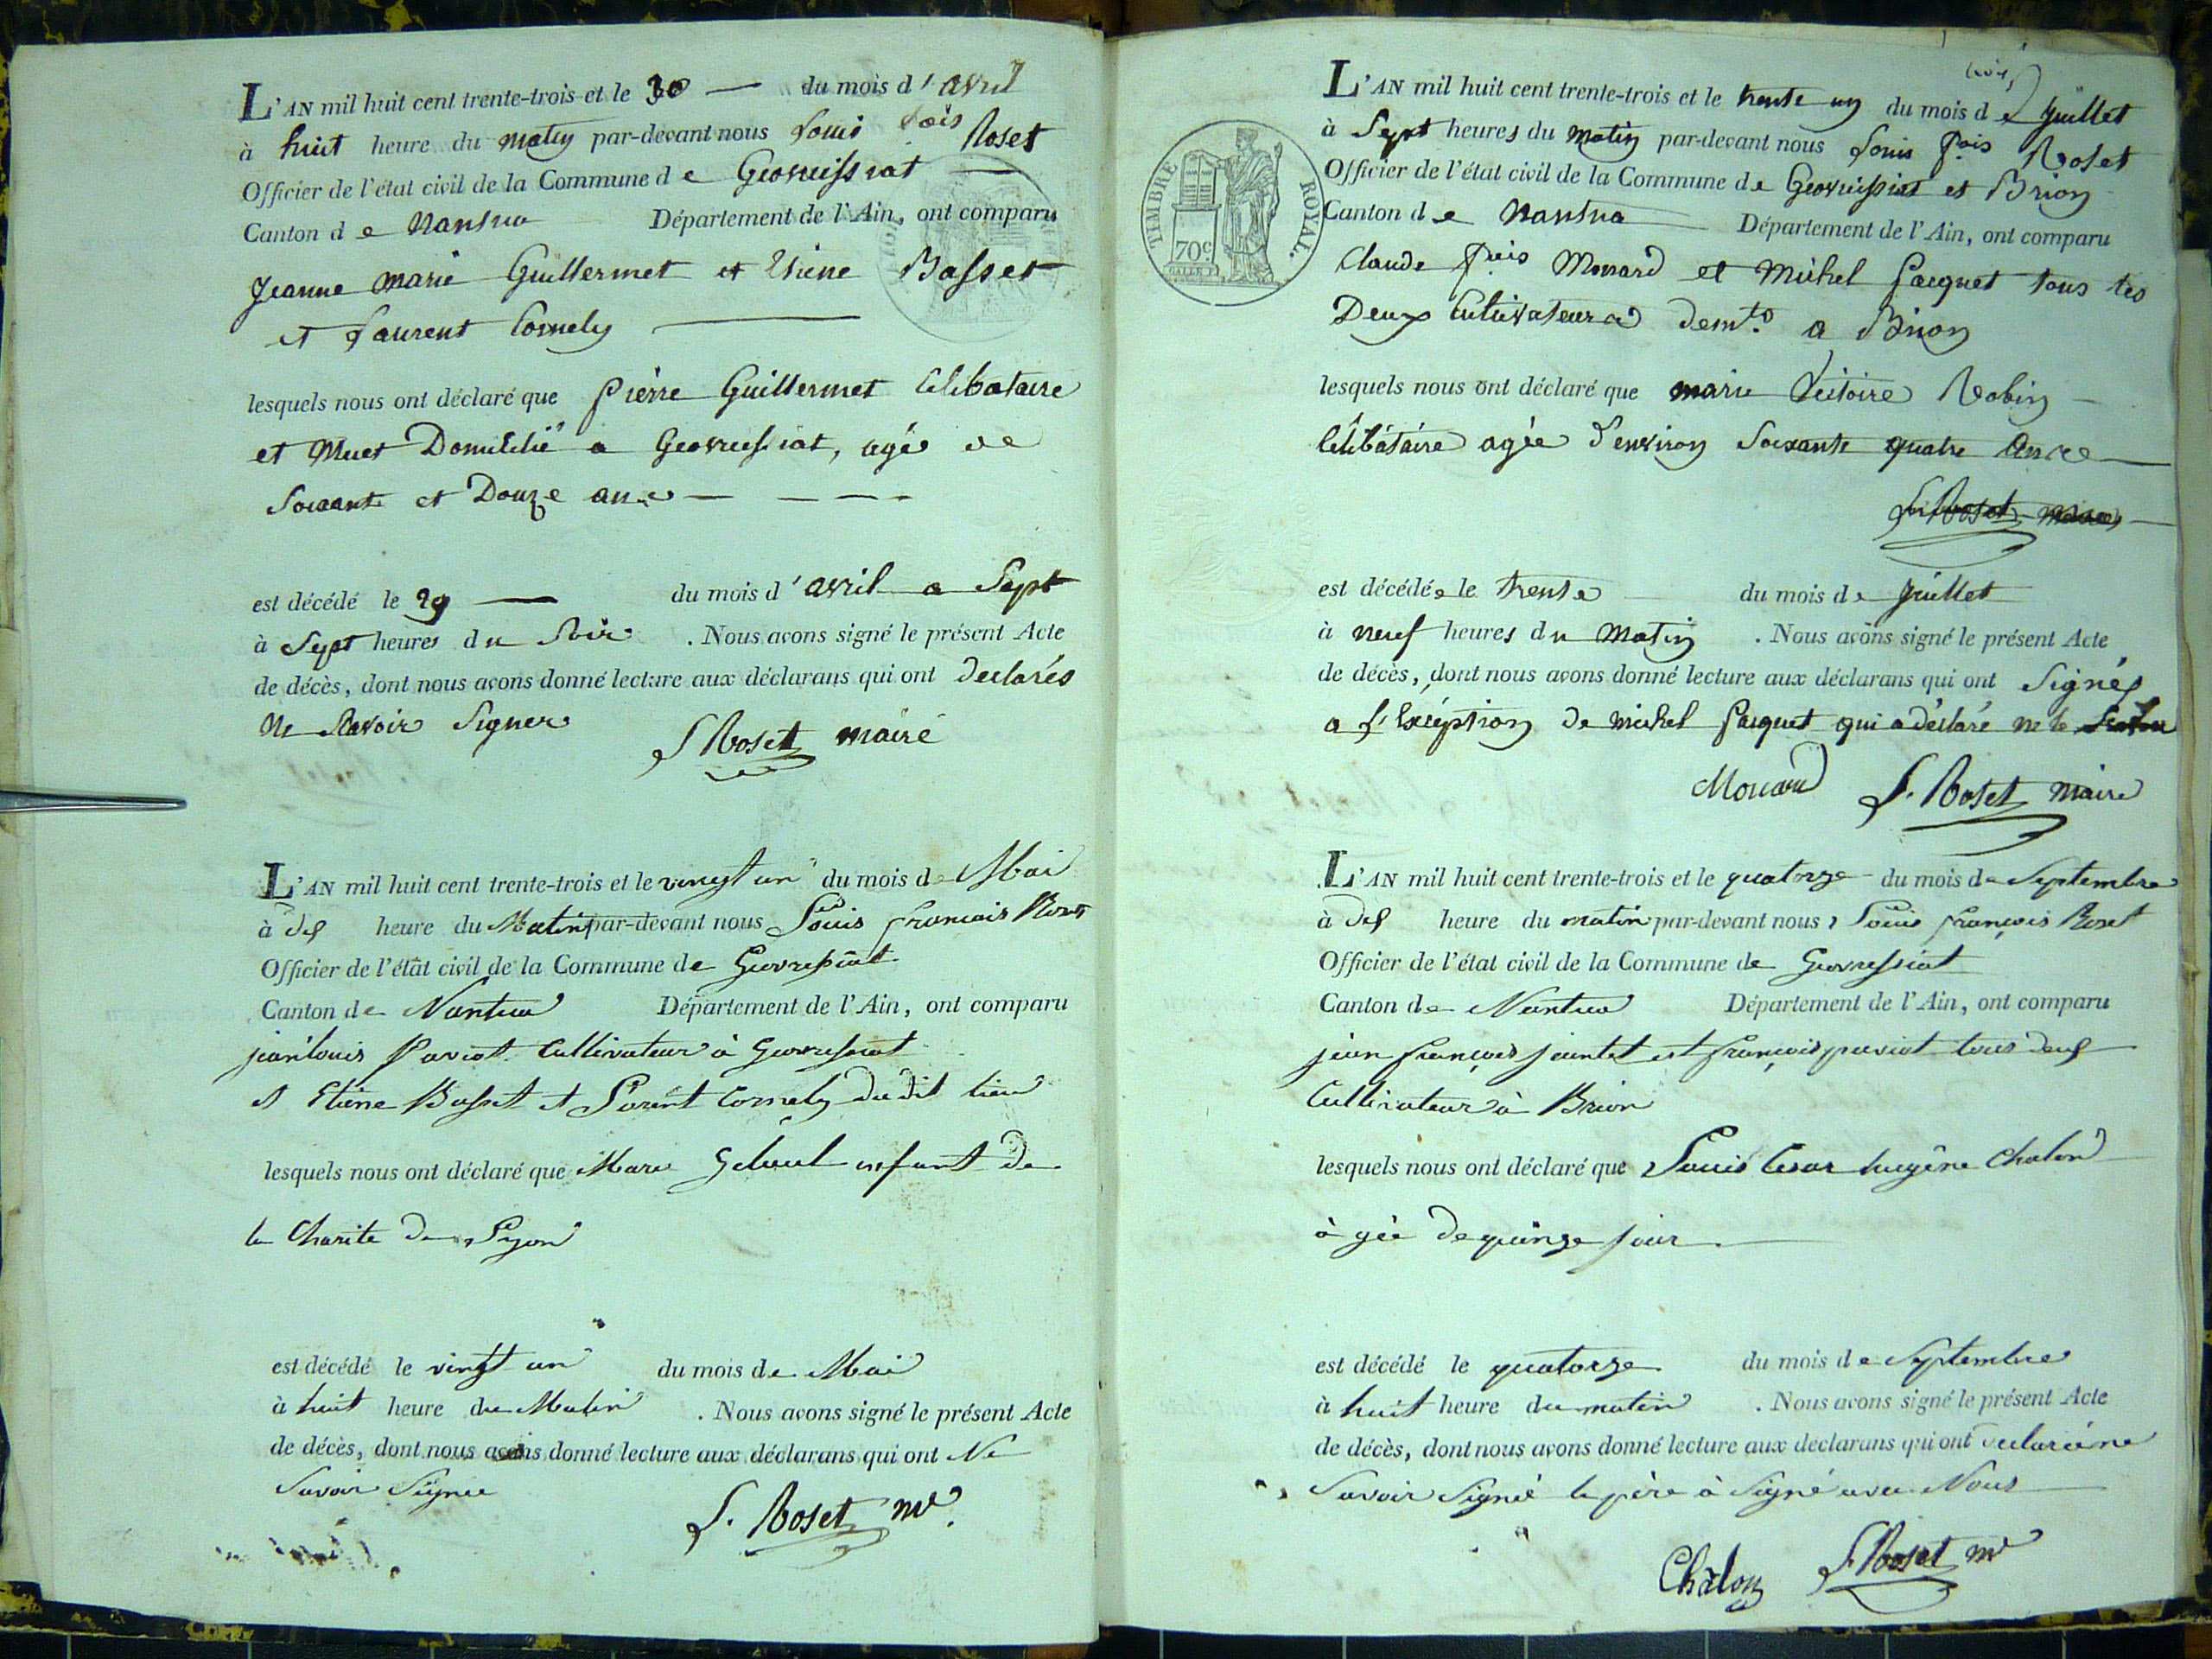 L'AN mil huit cent trente-trois et le 30 — du mois d'avril
à huit heure du matin par-devant nous Louis fois Roset
Officier de l'état civil de la Commune de Geovreissiat —
Canton de Nantua Département de l'Ain, ont comparu
Jeanne marie Guillermet et Etiene Basset
et Laurent Cornely —
lesquels nous ont déclaré que pierre Guillermet Celibataire
et Muet Domicilié a Geovreissiat, agé de
Soixante et Douze ans — — — —
est décédé le 29 — du mois d'avril a Sept
à Sept heures du Soir . Nous avons signé le présent Acte
de décès, dont nous avons donné lecture aux déclarans qui ont declarés
Ne Savoir Signer
L Roset maire
L'AN mil huit cent trente-trois et le vingt un du mois de Mai
à dix heure du Matin par-devant nous Louis francois Roset
Officier de l'état civil de la Commune de Geovressiat
Canton de Nantua Département de l'Ain, ont comparu
jean louis Paviot Cultivateur à Geovressiat
et Etiene Basset et Lorent Cornely du dit lieu
lesquels nous ont déclaré que Marie enfant de
la Charite de Lyon
est décédé le vingt un du mois de Mai
à huit heure du Matin . Nous avons signé le présent Acte
de décès, dont nous avons donné lecture aux déclarans qui ont Ne
Savoir Signer
L. Roset mre
TIMBRE ROYAL.
70c
L'AN mil huit cent trente-trois et le trente un du mois de Juillet
à Sept heures du matin par-devant nous Louis fois Roset
Officier de l'état civil de la Commune de Geovreissiat et Brion
Canton de Nantua Département de l'Ain, ont comparu
Claude fois Monard et Michel pacquet tous les
Deux Cultivateurs demts a Brion
lesquels nous ont déclaré que marie Victoire Robin —
Célibataire agée d'environ Soixante quatre Ans —
L Roset maire —
est décédée le trente du mois de Juillet
à neuf heures du Matin . Nous avons signé le présent Acte
de décès, dont nous avons donné lecture aux déclarans qui ont Signés
a l'Exception de michel pacquet qui a déclaré ne le Savoir
Monard L. Roset maire
L'AN mil huit cent trente-trois et le quatorze du mois de Septembre
à dix heure du matin par-devant nous Louis françois Roset
Officier de l'état civil de la Commune de Geovressiat
Canton de Nantua Département de l'Ain, ont comparu
jean françois jeantet et françois paviot tous deux
Cultivateur à Brion
lesquels nous ont déclaré que Louis Cesar hugêne Chalon
à gée de quinze jour —
est décédé le quatorze du mois de Septembre
à huit heure du matin . Nous avons signé le présent Acte
de décès, dont nous avons donné lecture aux déclarans qui ont declaré ne
Savoir Signé le père à Signé avec Nous —
Châlon L Roset mre